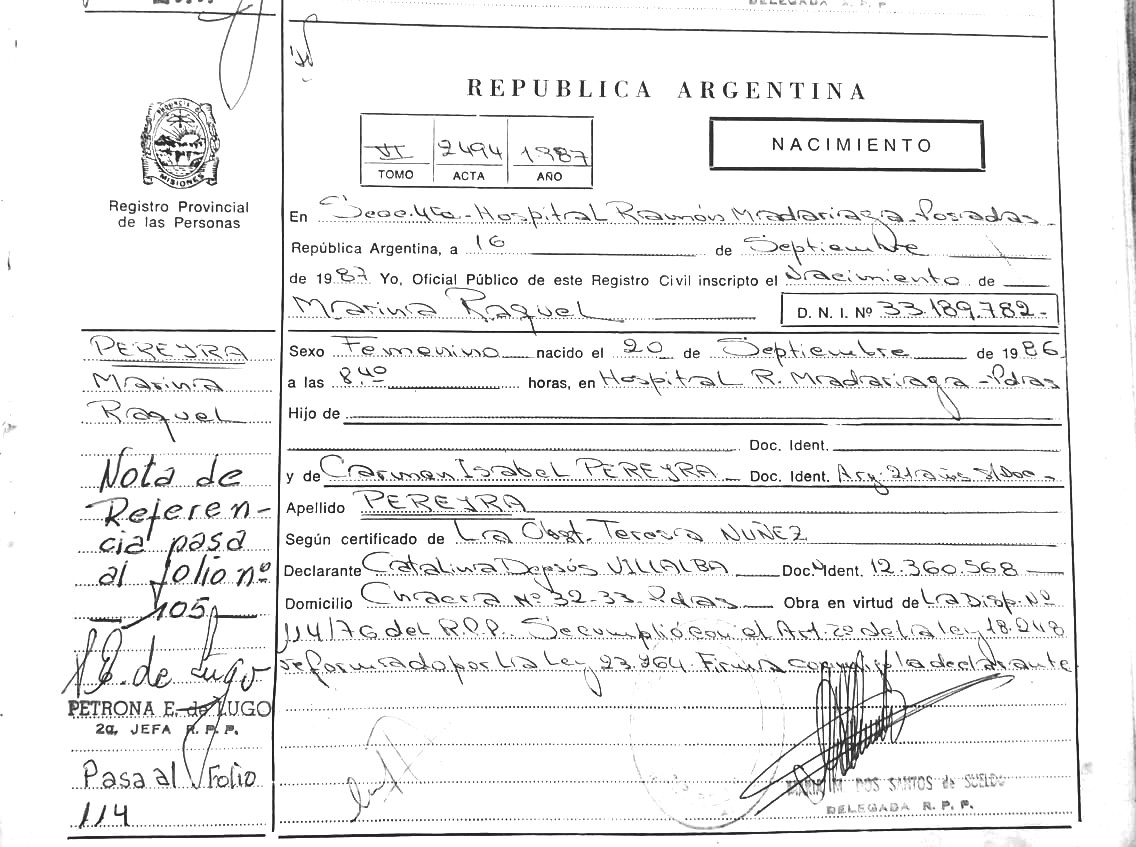 DELEGADA R. P. P.
REPUBLICA ARGENTINA
PROVINCIA DE
MISIONES
Registro Provincial
de las Personas
VI 2494 1987
TOMO ACTA AÑO
NACIMIENTO
En Secc. 4ta - Hospital Ramón Madariaga - Posadas
República Argentina, a 16 de Septiembre
de 1987 Yo, Oficial Público de este Registro Civil inscripto el Nacimiento de
Marina Raquel D. N. I. Nº 33.189.782-
Sexo Femenino nacido el 20 de Septiembre de 1986
a las 8.40 horas, en Hospital R. Madariaga - Pdas
Hijo de
Doc. Ident.
y de Carmen Isabel PEREYRA Doc. Ident. Arg. 21 años S/Doc -
Apellido PEREYRA
Según certificado de La Obst. Teresa NUÑEZ
Declarante Catalina VILLALBA Doc. Ident. 12.360.568
Domicilio Chacra Nº 32-33- Pdas Obra en virtud de La Disp. Nº
114/76 del R.P.P. Se cumplió con el Art. 2º de la ley 18.248
reformado por la Ley 23.264. Firma la declarante
PEREYRA
Marina
Raquel
Nota de
Referen-
cia pasa
al folio nº
105
E. de Lugo
PETRONA E. de LUGO
2a. JEFA R. P. P.
Pasa al Folio
114
DOS SANTOS de SUELDO
DELEGADA R. P. P.